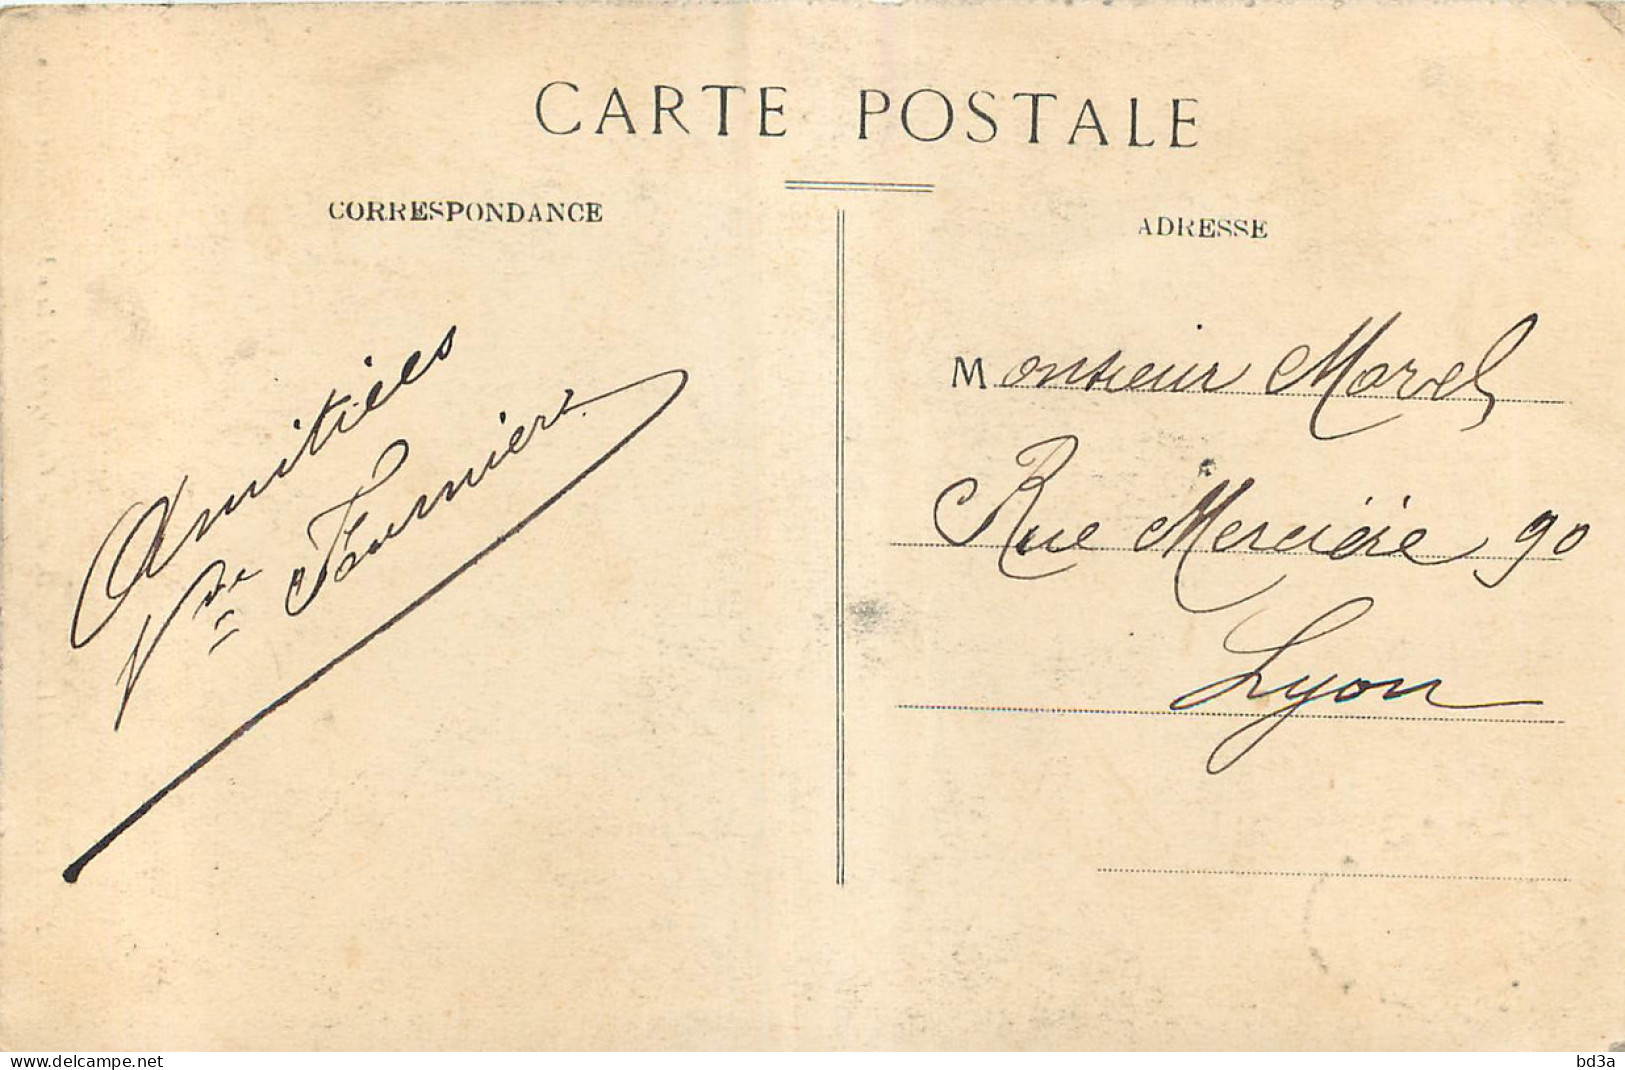 CARTE POSTALE
CORRESPONDANCE
ADRESSE
Amitiées
Vve Fournier
Monsieur Morel
Rue Mercière 90
Lyon
www.delcampe.net
bd3a